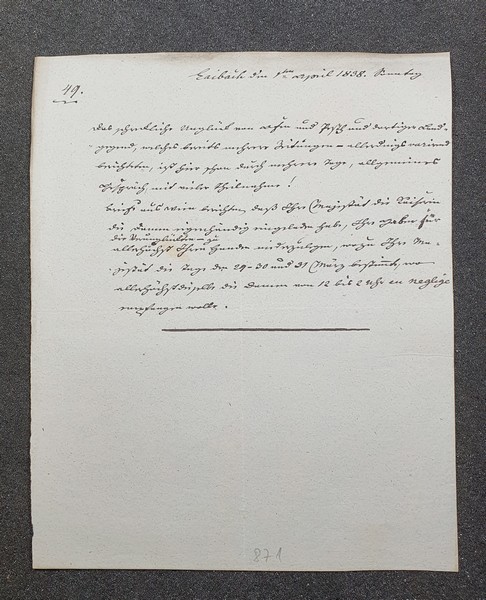 Laibach den 1ten April 1838. Sonntag
49.
Das schreckliche Unglück von Ofen und Pesth und dortiger Um-
gegend, welches bereits mehrere Zeitungen – allerdings variirend
berichteten, ist hier schon durch mehrere Tage, allgemeines
Gespräch mit vieler Theilnahme!
Briefe aus Wien berichten, daß Ihre Majestät die Kaiserin
die Damen eigenhändig eingeladen habe, Ihre Gaben für
die Verunglückten zu
allerhöchst Ihren Handen niederzulegen, wozu Ihre Ma-
jestät die Tage den 29–30 und 31 März bestimmte, wo
allerhöchstdieselbe die Damen von 12 bis 2 Uhr en neglige
empfangen wolle.
871